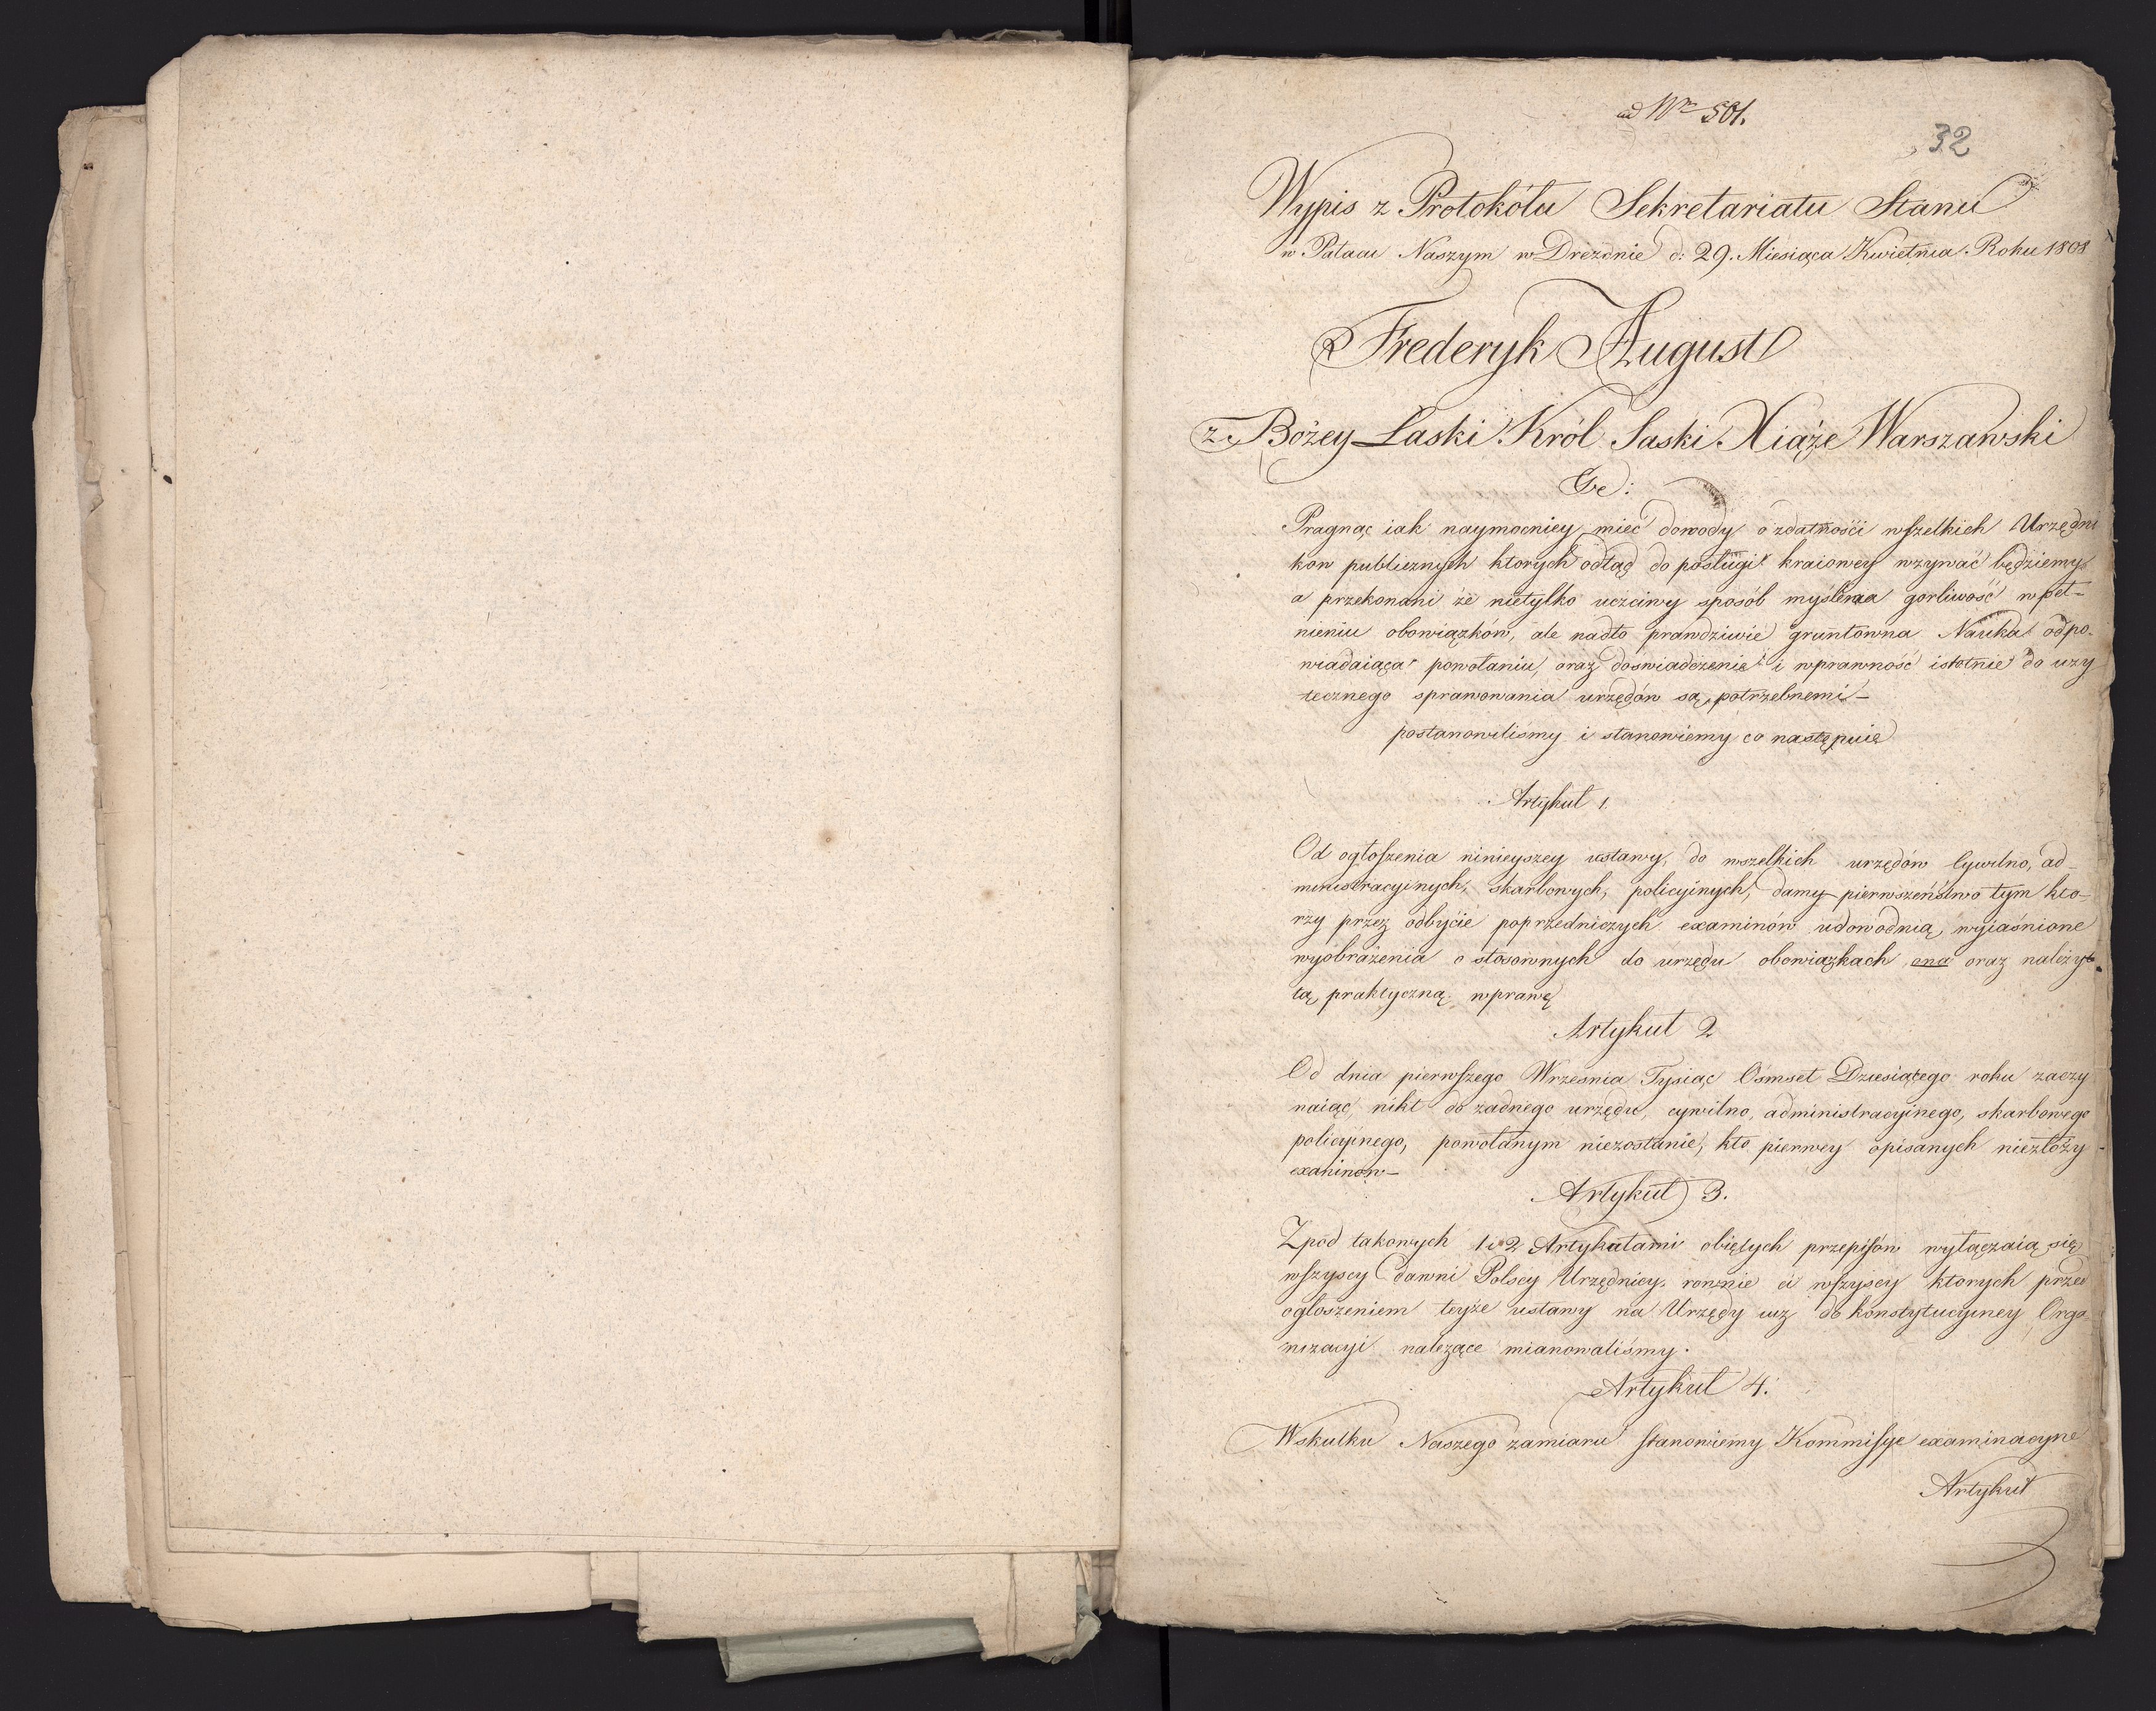 ad Nr 501.
32
Wypis z Protokółu Sekretariatu Stanu
w Pałacu Naszym w Dreźdnie d: 29. Miesiąca Kwietnia Roku 1808
Frederyk August
z Bożey Łaski Król Saski Xiąże Warszawski
&c:
Pragnąc iak naymocniey mieć dowody o zdatności wszelkich Urzędni
kow publicznych ktorych odtąd do posługi kraiowey wzywać będziemy
a przekonani że nietylko uczciwy sposób myślenia gorliwość w peł-
nieniu obowiązków, ale nadto prawdziwie gruntowna Nauka odpo-
wiadaiąca powołaniu, oraz doswiadczenie i wprawność istotnie do uzy
tecznego sprawowania urzędów są potrzebnemi-
postanowiliśmy i stanowiemy co następuie
Artykuł 1.
Od ogłoszenia ninieyszey ustawy, do wszelkich urzędów Cywilno, ad-
ministracyinych, skarbowych, policyinych, damy pierwszeństwo tym kto-
rzy przez odbycie poprzedniczych examinów udowodnią wyiaśnione
wyobrażenia o stosownych do urzędu obowiązkach ona oraz należy-
tą praktyczną wprawę
Artykuł 2
Od dnia pierwszego Wrzesnia Tysiąc Osmset Dziesiątego roku zaczy
naiąc, nikt do żadnego urzędu, cywilno, administracyinego, skarbowego
policyinego, powołanym niezostanie, kto pierwey opisanych niezłoży-
examinow-
Artykuł 3.
Zpod takowych 1 i 2 Artykułami obiętych przepisów wyłączaią się
wszyscy dawni Polscy Urzędnicy, rownie ci wszyscy ktorych przed
ogłoszeniem teyże ustawy na Urzędy iuż do konstytucyiney Orga
nizacyi należące mianowaliśmy.
Artykuł 4.
Wskutku Naszego zamiaru stanowiemy Kommissye examinacyne
Artykuł